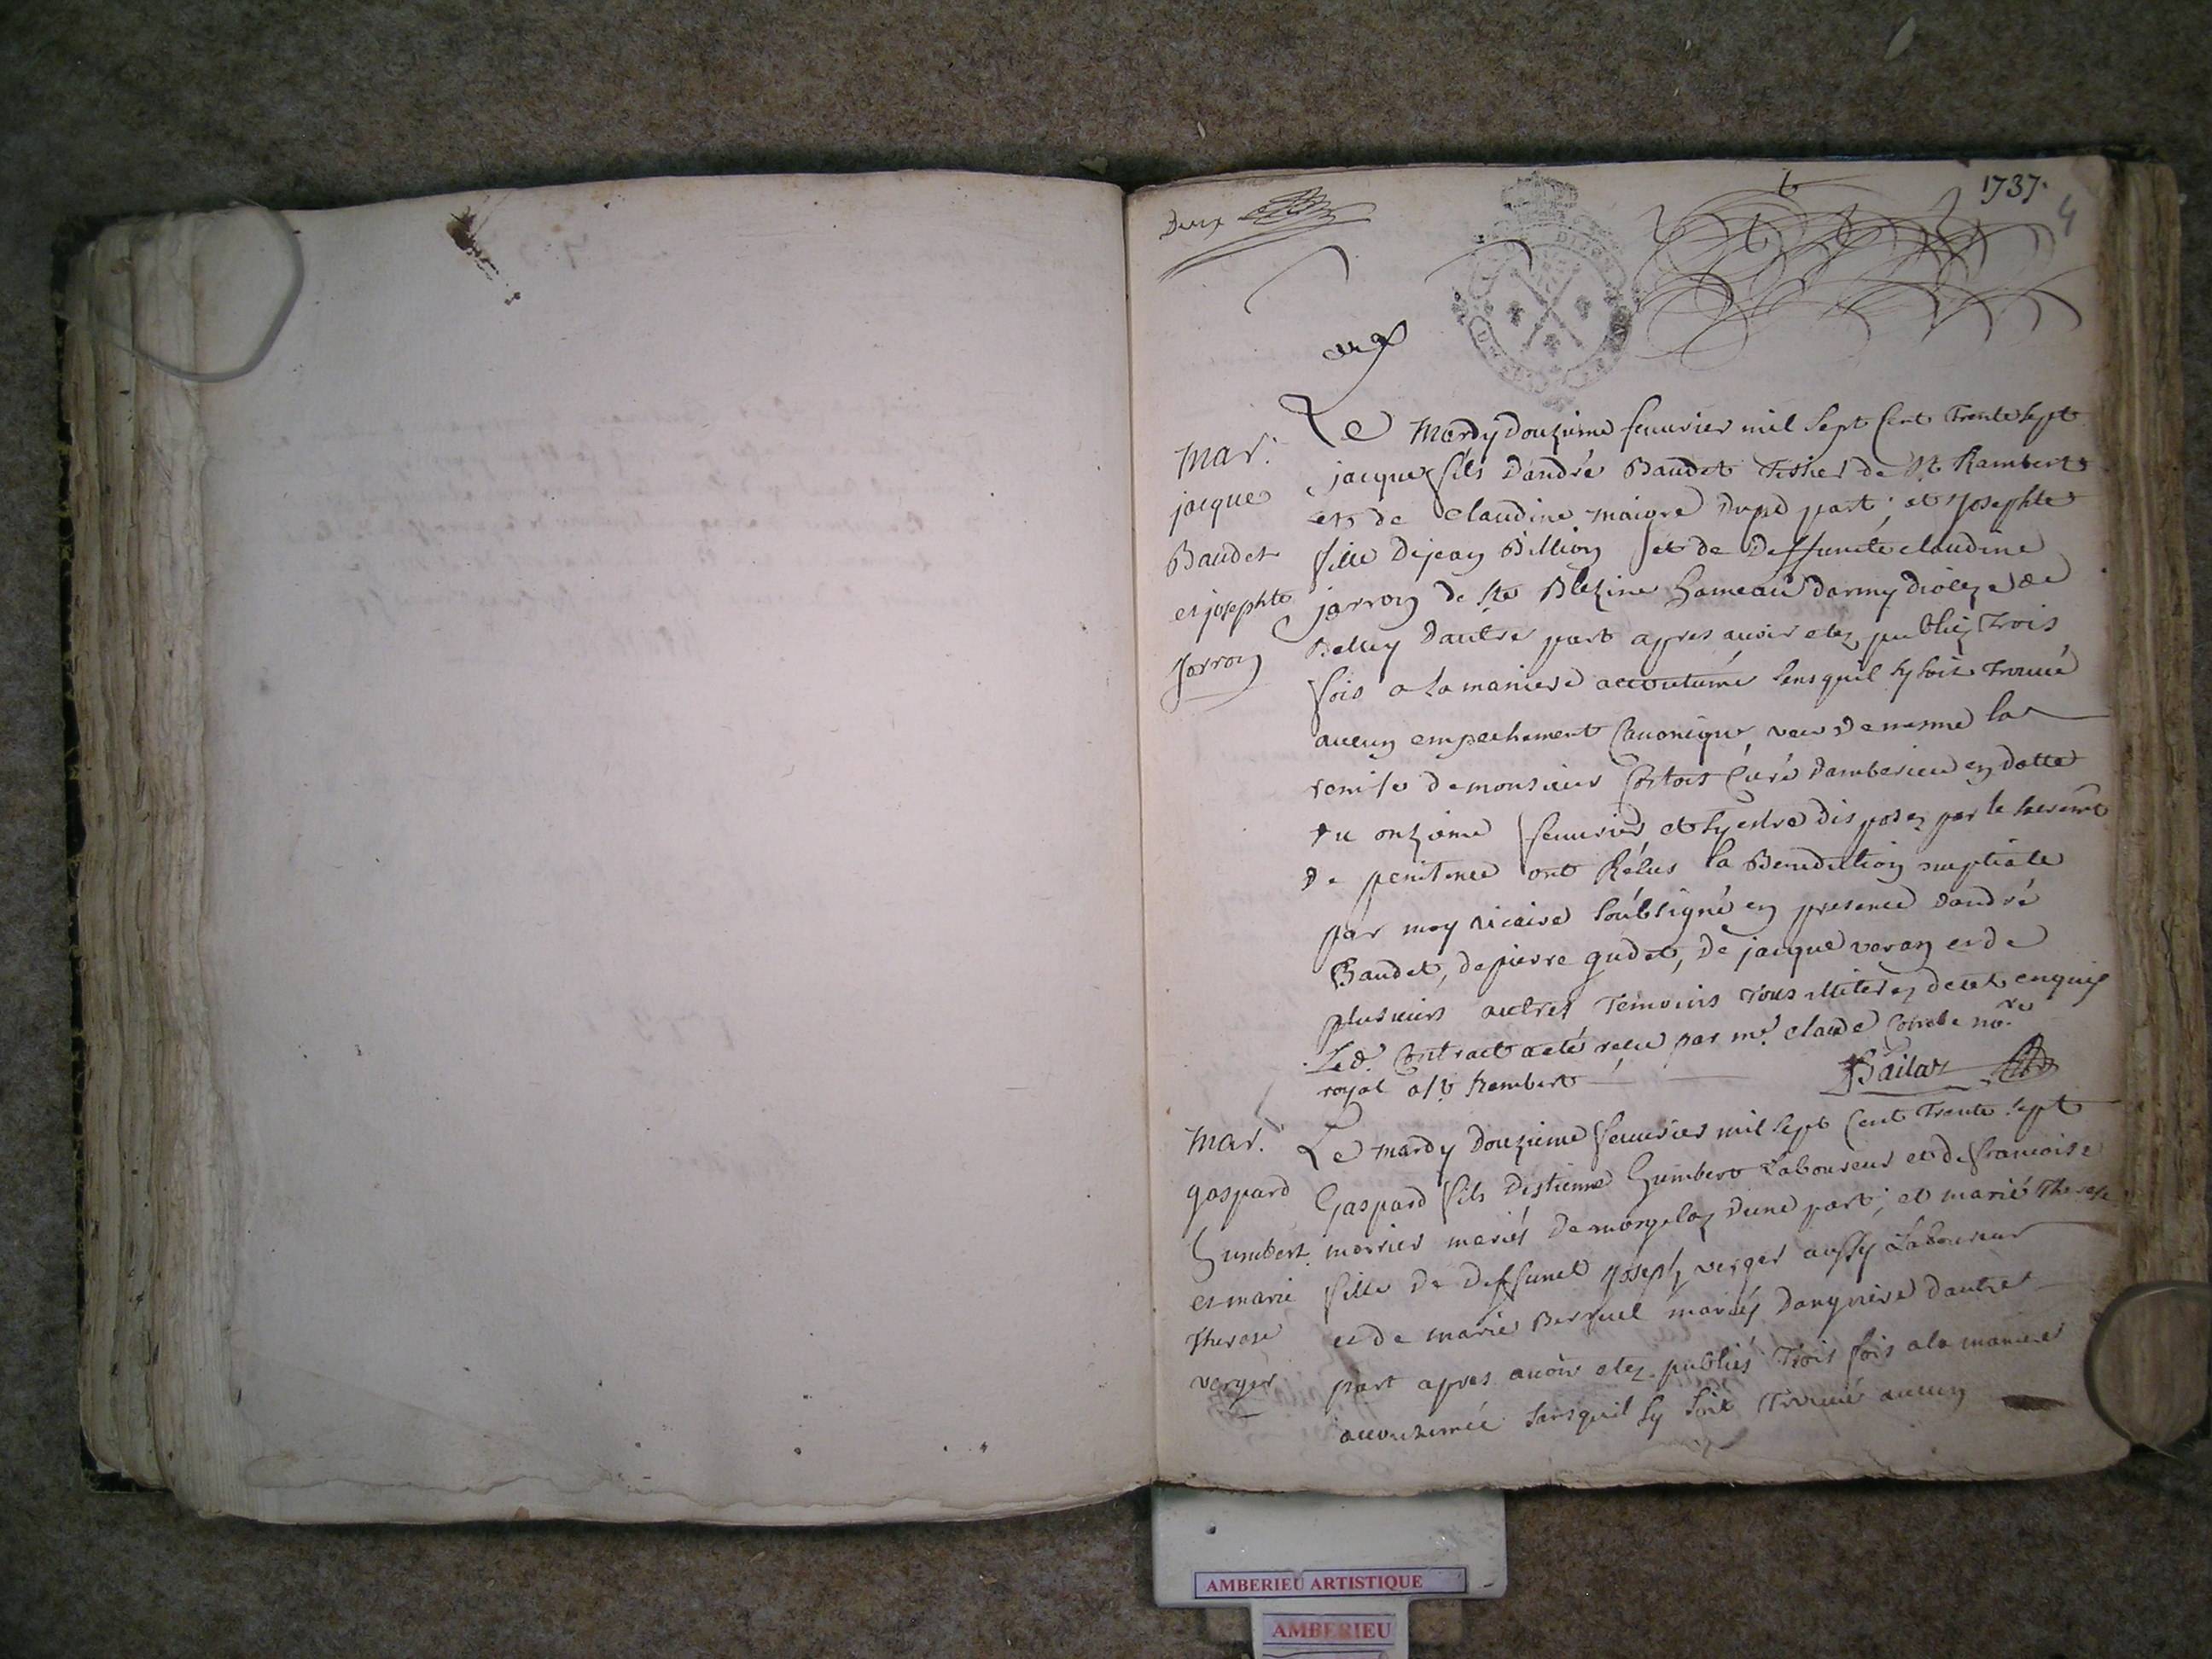 Deux
1737.
4
Mar.
jacque
Baudet
et josephte
Jarron
Le Mardy douzieme feuurier mil sept Cent Trente sept
jacque fils dandré Baudet Tissier de St. Rambert
et de Claudine maigre dune part; et josephte
fille dejean Billion et de Deffuncte claudine
jarron de Ste Blezine hameau darmy dioleze de
Belley dautre part apres auoir etez publiez Trois
fois a la maniere accoutumé sens quil sy soit Trouué
aucun empechement Canonique, veu de mesme la
remise demonsieur Cortois Curé damberieu en datte
du onzieme feuurier, et sy estre disposez par le sacremt
de penitence ont Recus la Benediction nuptiale
par moy vicaire soubsigné en presence dandré
Baudet, de pierre gudet, de jacque veran et de
plusieurs autres Temoins Tous illiterez de ce enquis
Led. Contract a eté receu par me. claude nore
royal a St. Rambert
Bailat
Mar.
gaspard
humbert
et marie
Therese
verger
Le mardy douzieme feuurier mil sept Cent Trente sept
Gaspard fils destienne humbert Laboureur et de francoise
morrier mariés de morgelaz dune part; et marie Therese
fille de deffunct joseph verger aussy Laboureur
et de marie Berruel mariés dangriere dautre
part apres auoir etez publiés Trois fois a la maniere
accoutumée sans quil sy soit Trouué aucun
AMBERIEU ARTISTIQUE
AMBERIEU